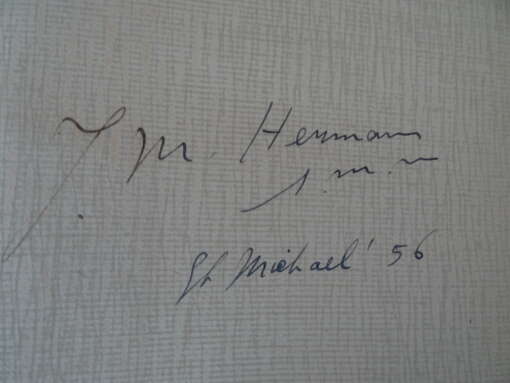 J. M. Hermans
s.m.m
St Michael '56